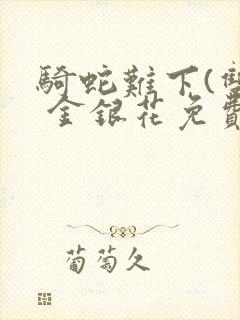 騎蛇難下(雙
金銀花免費
葡萄久